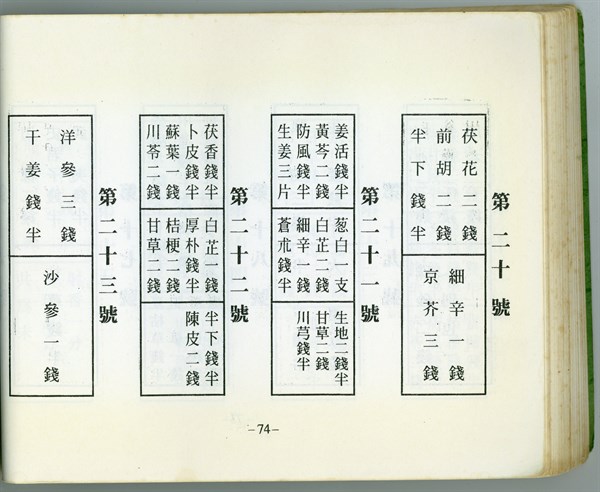 第二十號
茯花二錢
前胡二錢
半下錢半
細辛一錢
京芥三錢
第二十一號
姜活錢半
黃芩二錢
防風錢半
生姜三片
葱白一支
白芷二錢
細辛一錢
蒼朮錢半
生地二錢半
甘草二錢
川芎錢半
第二十二號
茯香錢半
卜皮錢半
蘇葉一錢
川苓二錢
白芷一錢
厚朴錢半
桔梗二錢
甘草二錢
半下錢半
陳皮二錢
第二十三號
洋參三錢
干姜錢半
沙參一錢
-74-